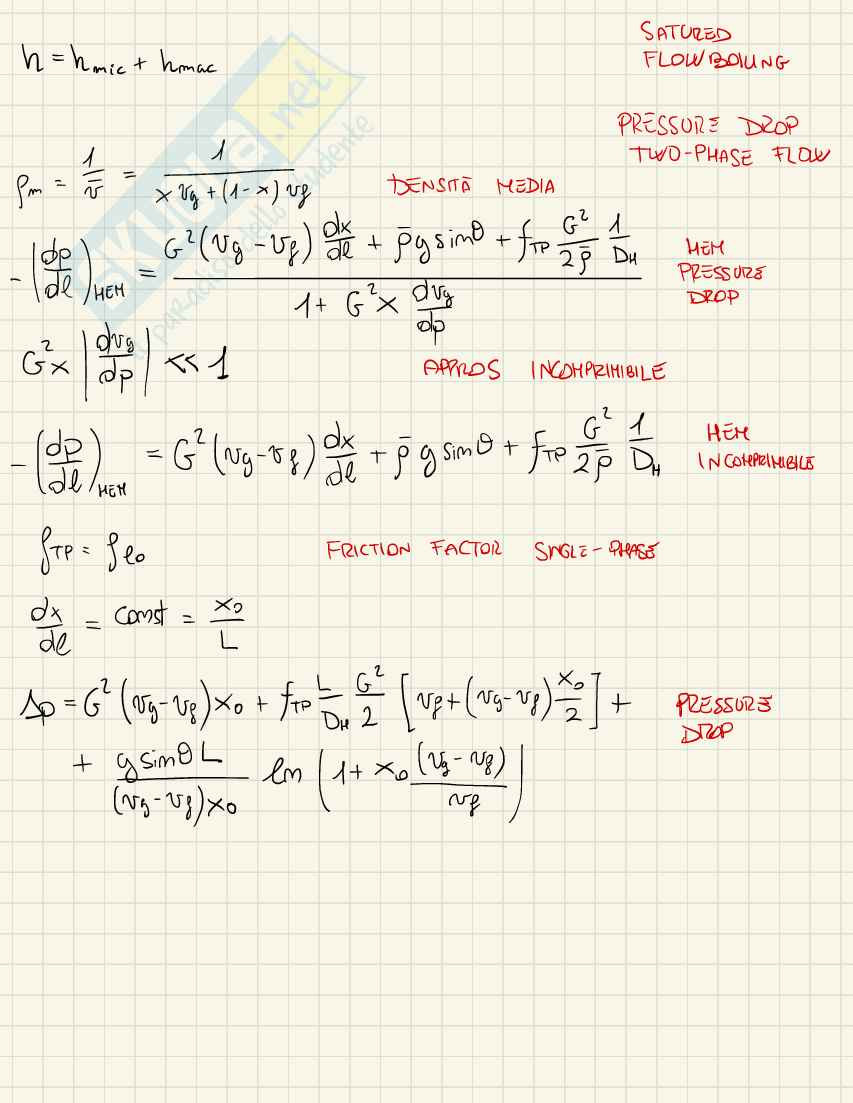 h = h_mic + h_mac
SATURED
FLOW BOILING
PRESSURE DROP
TWO-PHASE FLOW
ρ_m = 1/v̄ = 1/(x v_g + (1-x) v_f)
DENSITÀ MEDIA
-(dp/dl)_HEM = [G²(v_g - v_f) dx/dl + ρ̄ g sinθ + f_TP G²/2ρ̄ 1/D_H] / [1 + G² x dv_g/dp]
HEM
PRESSURE
DROP
G² x |dv_g/dp| << 1
APPROS INCOMPRIMIBILE
-(dp/dl)_HEM = G²(v_g - v_f) dx/dl + ρ̄ g sinθ + f_TP G²/2ρ̄ 1/D_H
HEM
INCOMPRIMIBILE
f_TP = f_lo
FRICTION FACTOR SINGLE-PHASE
dx/dl = const = x_o/L
Δp = G²(v_g - v_f) x_o + f_TP L/D_H G²/2 [v_f + (v_g - v_f) x_o/2] +
PRESSURE
DROP
+ g sinθ L/((v_g - v_f) x_o) ln(1 + x_o (v_g - v_f)/v_f)
SKUOLA.net
il paradiso dello studente